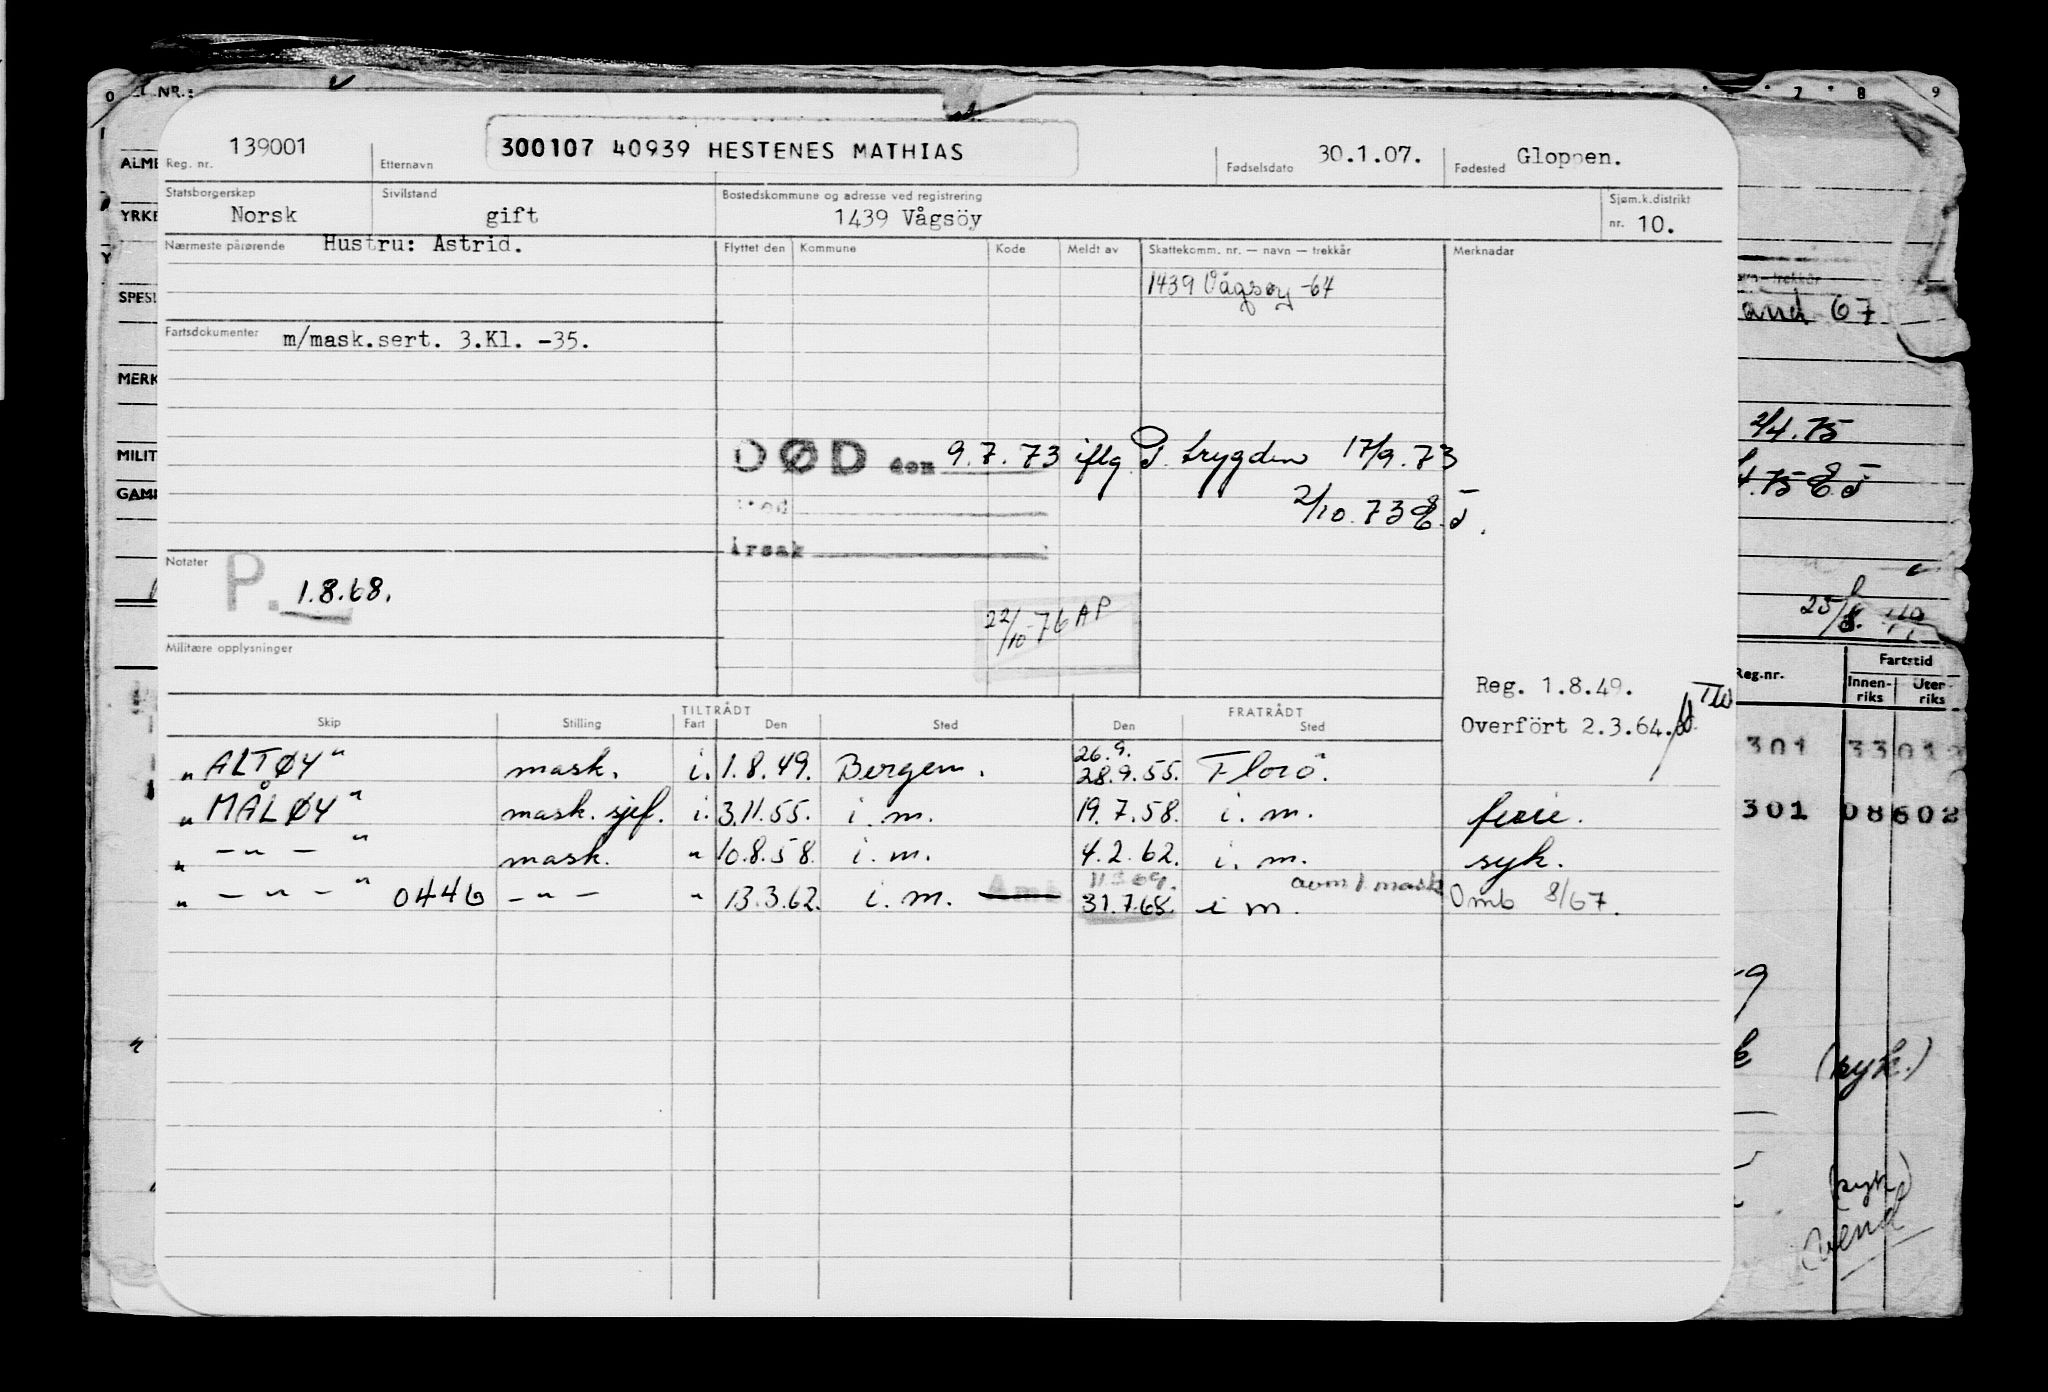 139001
Reg. nr.
Etternavn
300107 40939 HESTENES MATHIAS
Fødselsdato 30.1.07.
Fødested Gloppen.
Statsborgerskap Norsk
Sivilstand gift
Bostedskommune og adresse ved registrering
1439 Vågsöy
Sjøm.k.distrikt
nr. 10.
Nærmeste pårørende Hustru: Astrid.
Flyttet den Kommune Kode Meldt av Skattekomm. nr. — navn — trekkår Merknadar
1439 Vågsøy -64
Fartsdokumenter m/mask.sert. 3.Kl. -35.
DØD den 9.7.73 iflg. P. trygden 17/9.73
2/10.73 E.J.
Årsak
Notater P. 1.8.68.
22/10-76 AP
Militære opplysninger
Reg. 1.8.49.
Overfört 2.3.64.
TILTRÅDT FRATRÅDT
Skip Stilling Fart Den Sted Den Sted
26.9.
„ALTØY" mask. i. 1.8.49. Bergen. 28.9.55. Florö.
„MÅLØY" mask. sjef. i. 3.11.55. i. m. 19.7.58. i. m. ferie.
„ - " - " mask. " 10.8.58. i. m. 4.2.62. i. m. syk.
„ - " - " 0446 - " - " 13.3.62. i. m. 31.7.68. i m. Omb 8/67.
avm 1. mask
L. NR.:
ALME
YRKE
SPESI
MERK
MILIT
GAML
0
7 8 9
and 67
2/4.75
4.75 E.J
25/8.
Reg.nr. Fartstid
Innen-riks Uten-riks
301 33012
301 08602
(syk.)
(syk)
Vend